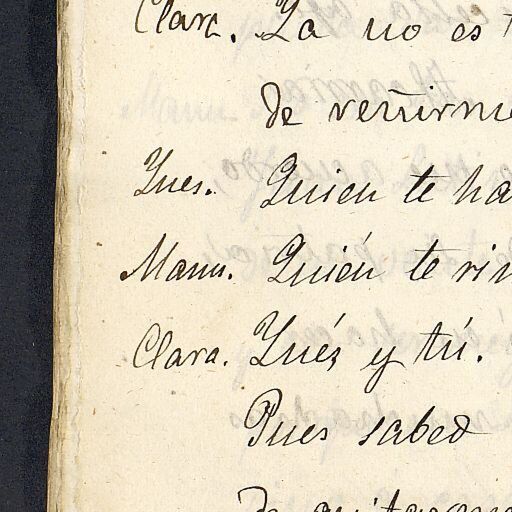 Clara. Ya no es t
de reñirme
Ynes. Quien te ha
Manu. Quién te riñ
Clara. Ynés y tú.
Pues sabed